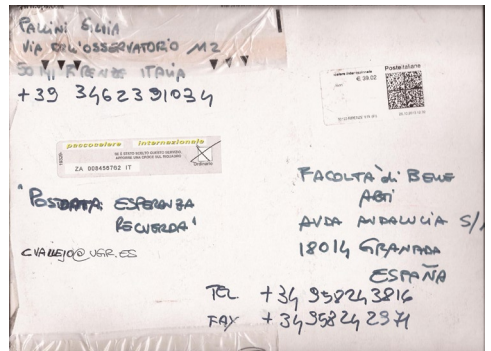 PALLINI SILVIA
VIA DELL'OSSERVATORIO M2
50141 FIRENZE ITALIA
+39 3462391034
Posteitaliane
€ 39.02
paccocelere internazionale
ZA 008458762 IT
Ordinario
"POSDATA ESPERANZA
RECUERDA"
CVALLEJO@UGR.ES
FACOLTÀ di BELLE
ARTI
AVDA ANDALUCIA S/
18014 GRANADA
ESPAÑA
TEL +34 958243816
FAX +34 958242971